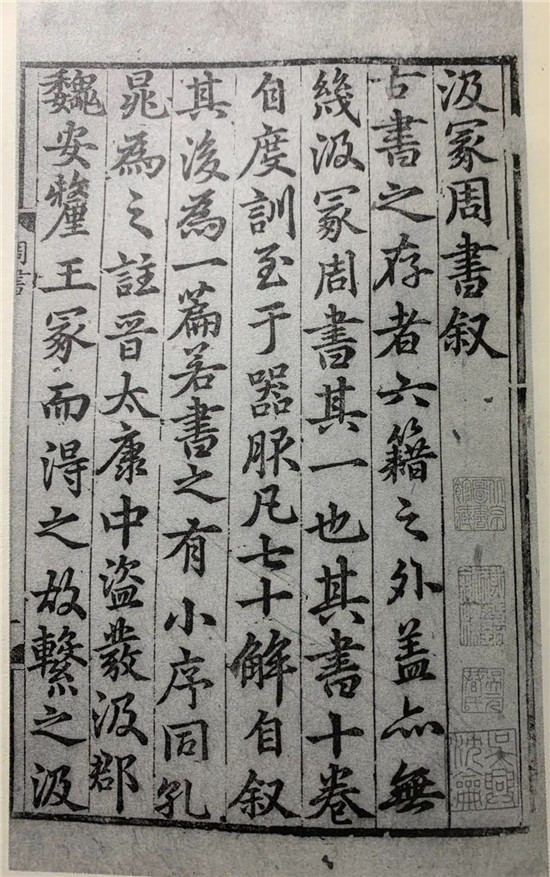 汲冢周書叙
古書之存者六籍之外盖亦無
幾汲冢周書其一也其書十卷
自度訓至于器服凡七十解自叙
其後為一篇若書之有小序同孔
晁為之註晉太康中盜發汲郡
魏安釐王冢而得之故繫之汲
周書